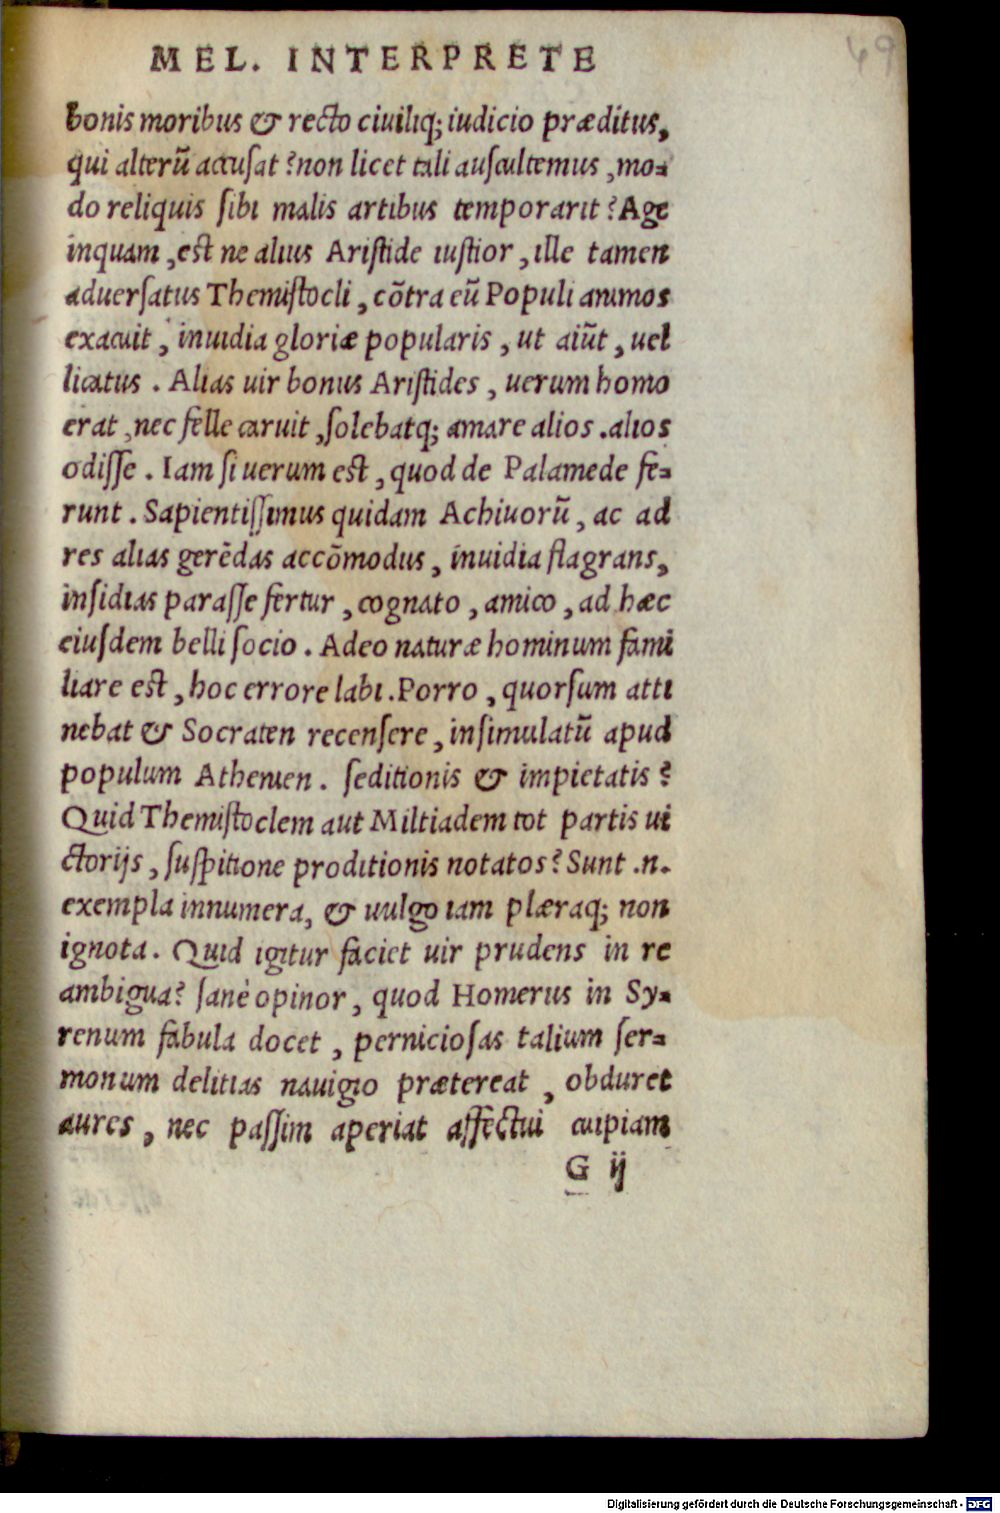 49
MEL. INTERPRETE
bonis moribus & recto ciuiliq; iudicio præditus,
qui alterũ accusat? non licet tali auscultemus, mo-
do reliquis sibi malis artibus temporarit? Age
inquam, est ne alius Aristide iustior, ille tamen
aduersatus Themistocli, cõtra eũ Populi animos
exacuit, inuidia gloriæ popularis, ut aiũt, uel
licatus. Alias uir bonus Aristides, uerum homo
erat, nec felle caruit, solebatq; amare alios. alios
odisse. Iam si uerum est, quod de Palamede fe-
runt. Sapientissimus quidam Achiuorũ, ac ad
res alias gerẽdas accõmodus, inuidia flagrans,
insidias parasse fertur, cognato, amico, ad hæc
eiusdem belli socio. Adeo naturæ hominum fami
liare est, hoc errore labi. Porro, quorsum atti
nebat & Socraten recensere, insimulatũ apud
populum Athenien. seditionis & impietatis?
Quid Themistoclem aut Miltiadem tot partis ui
ctorijs, suspitione proditionis notatos? Sunt .n.
exempla innumera, & uulgo iam plæraq; non
ignota. Quid igitur faciet uir prudens in re
ambigua? sanè opinor, quod Homerus in Sy-
renum fabula docet, perniciosas talium ser-
monum delitias nauigio prætereat, obduret
aures, nec passim aperiat affectui cuipiam
G ij
Digitalisierung gefördert durch die Deutsche Forschungsgemeinschaft - DFG